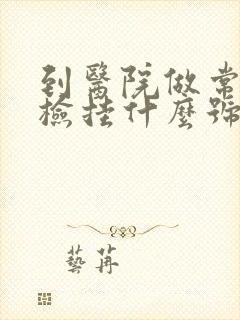 到醫院做常
檢挂什麼號
藝苒